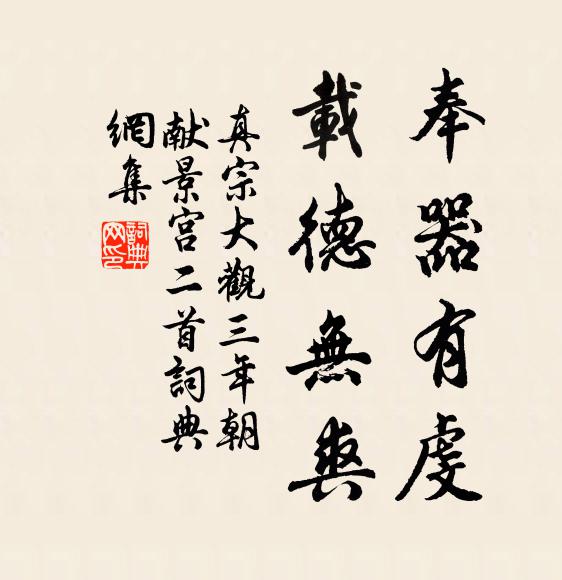 奉器有虔
載德無爽
真宗大觀三年朝
献景宫二首詞典
網集
詞典
网印